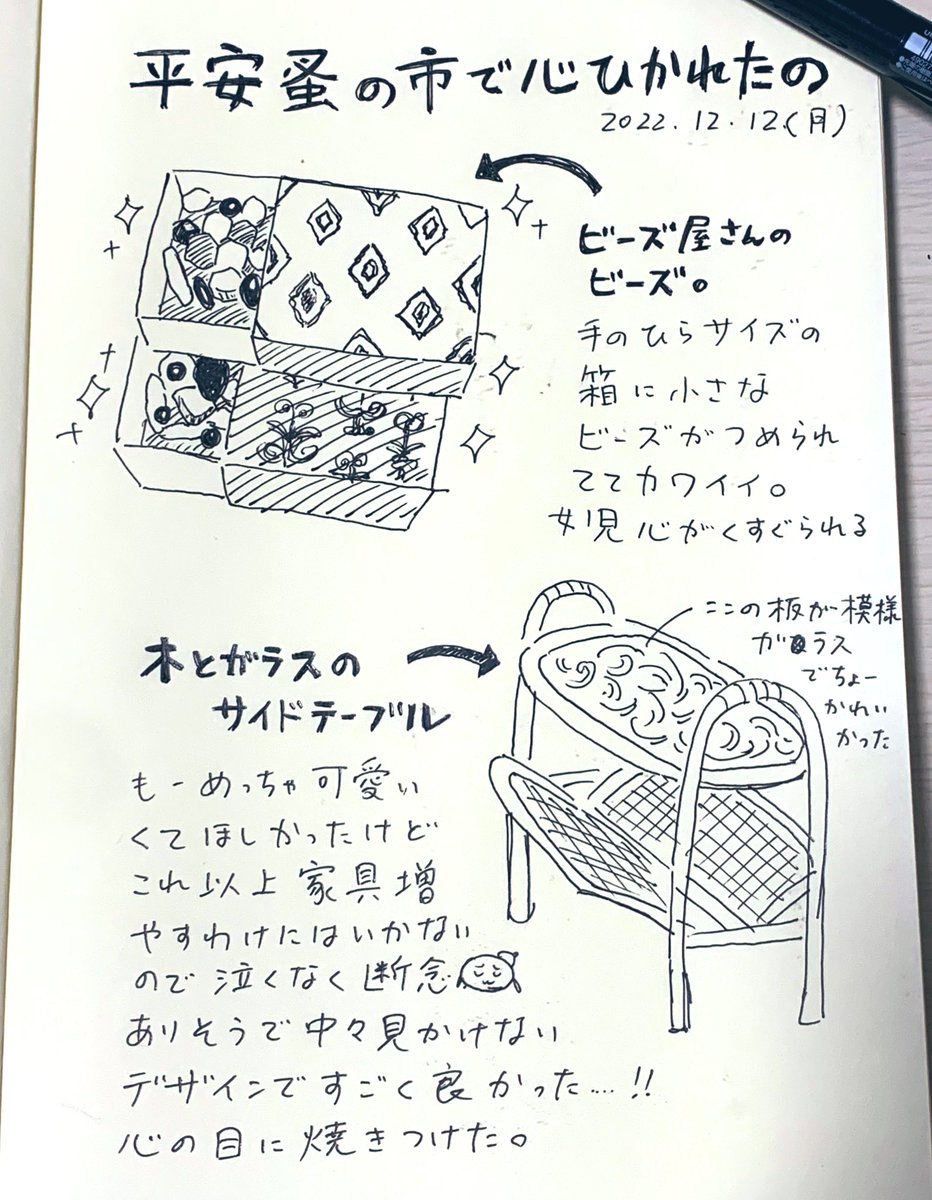 平安蚤の市で心ひかれたの
2022.12.12.(月)
ビーズ屋さんの
ビーズ。
手のひらサイズの
箱に小さな
ビーズがつめられ
ててカワイイ。
女児心がくすぐられる
ここの板が模様
ガラス
でちょー
かわい
かった
木とガラスの
サイドテーブル
もーめっちゃ可愛い
くてほしかったけど
これ以上家具増
やすわけにはいかない
ので泣くなく断念
ありそうで中々見かけない
デザインですごく良かった....!!
心の目に焼きつけた。